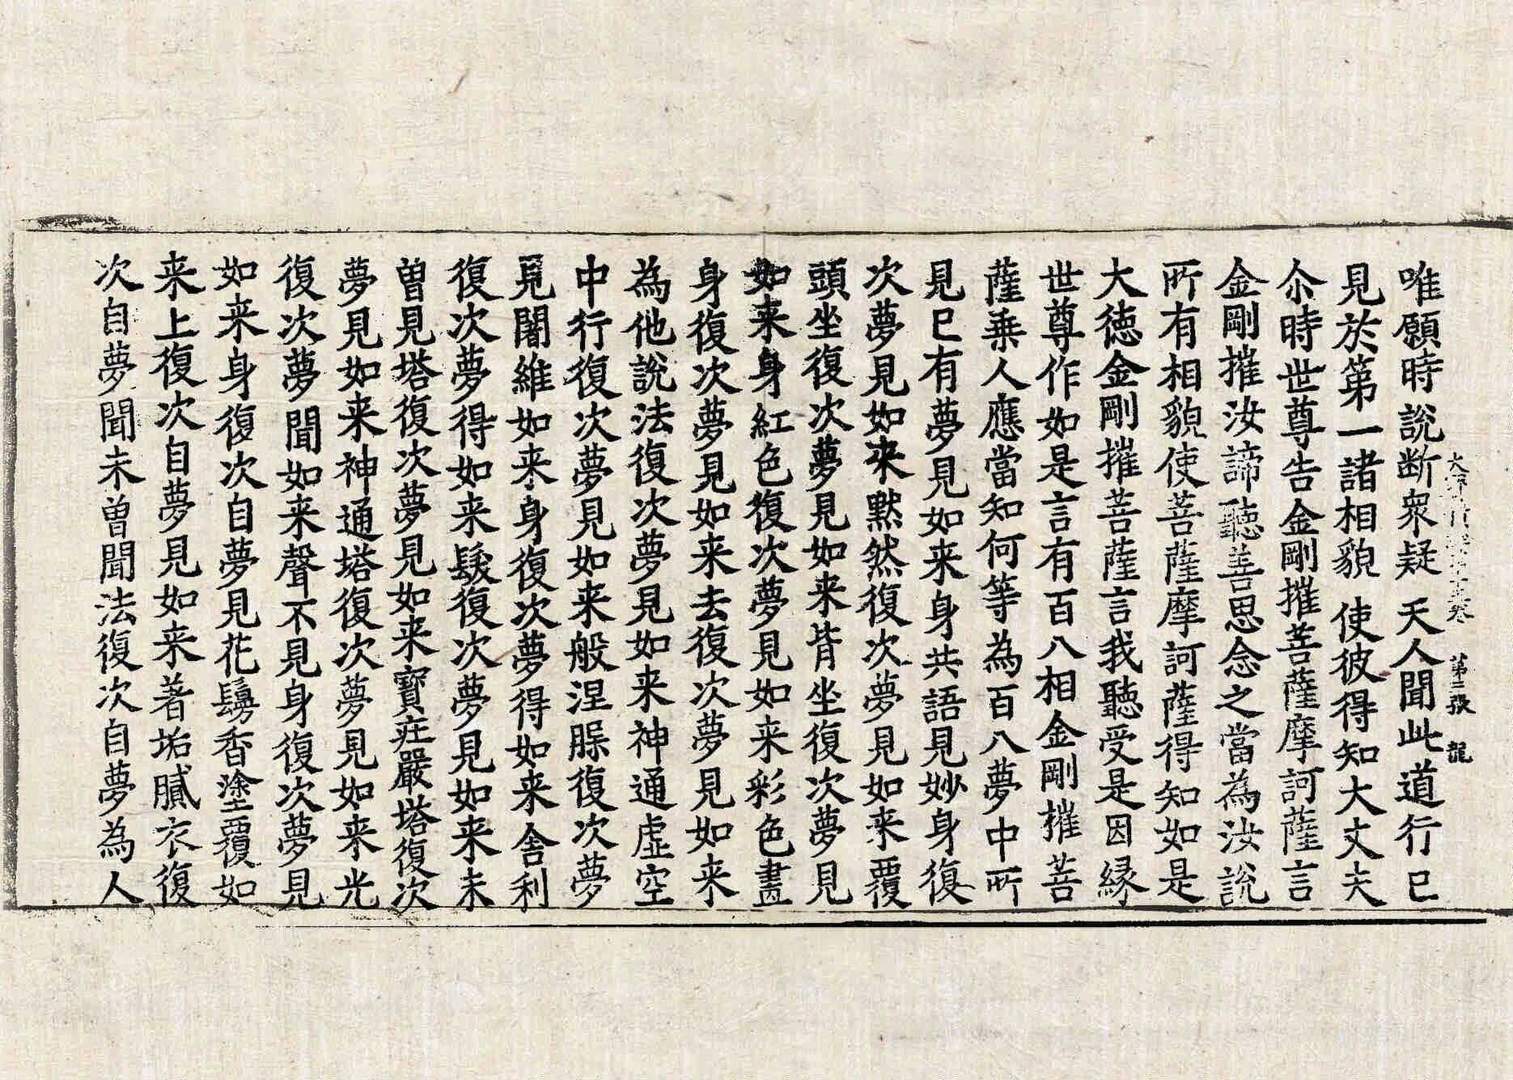 卷 第三張 龍
唯願時說断衆疑 天人聞此道行已
見於第一諸相貌 使彼得知大丈夫
尒時世尊告金剛摧菩薩摩訶薩言
金剛摧汝諦聽善思念之當為汝說
所有相貌使菩薩摩訶薩得知如是
大徳金剛摧菩薩言我聽受是因縁
世尊作如是言有百八相金剛摧菩
薩乗人應當知何等為百八夢中所
見已有夢見如来身共語見妙身復
次夢見如来黙然復次夢見如来覆
頭坐復次夢見如来背坐復次夢見
如来身紅色復次夢見如来彩色畫
身復次夢見如来去復次夢見如来
為他說法復次夢見如来神通虛空
中行復次夢見如来般涅槃復次夢
見闍維如来身復次夢得如来舍利
復次夢得如来髮復次夢見如来未
曽見塔復次夢見如来寳庄嚴塔復次
夢見如来神通塔復次夢見如来光
復次夢聞如来聲不見身復次夢見
如来身復次自夢見花鬘香塗覆如
来上復次自夢見如来著垢膩衣復
次自夢聞未曽聞法復次自夢為人